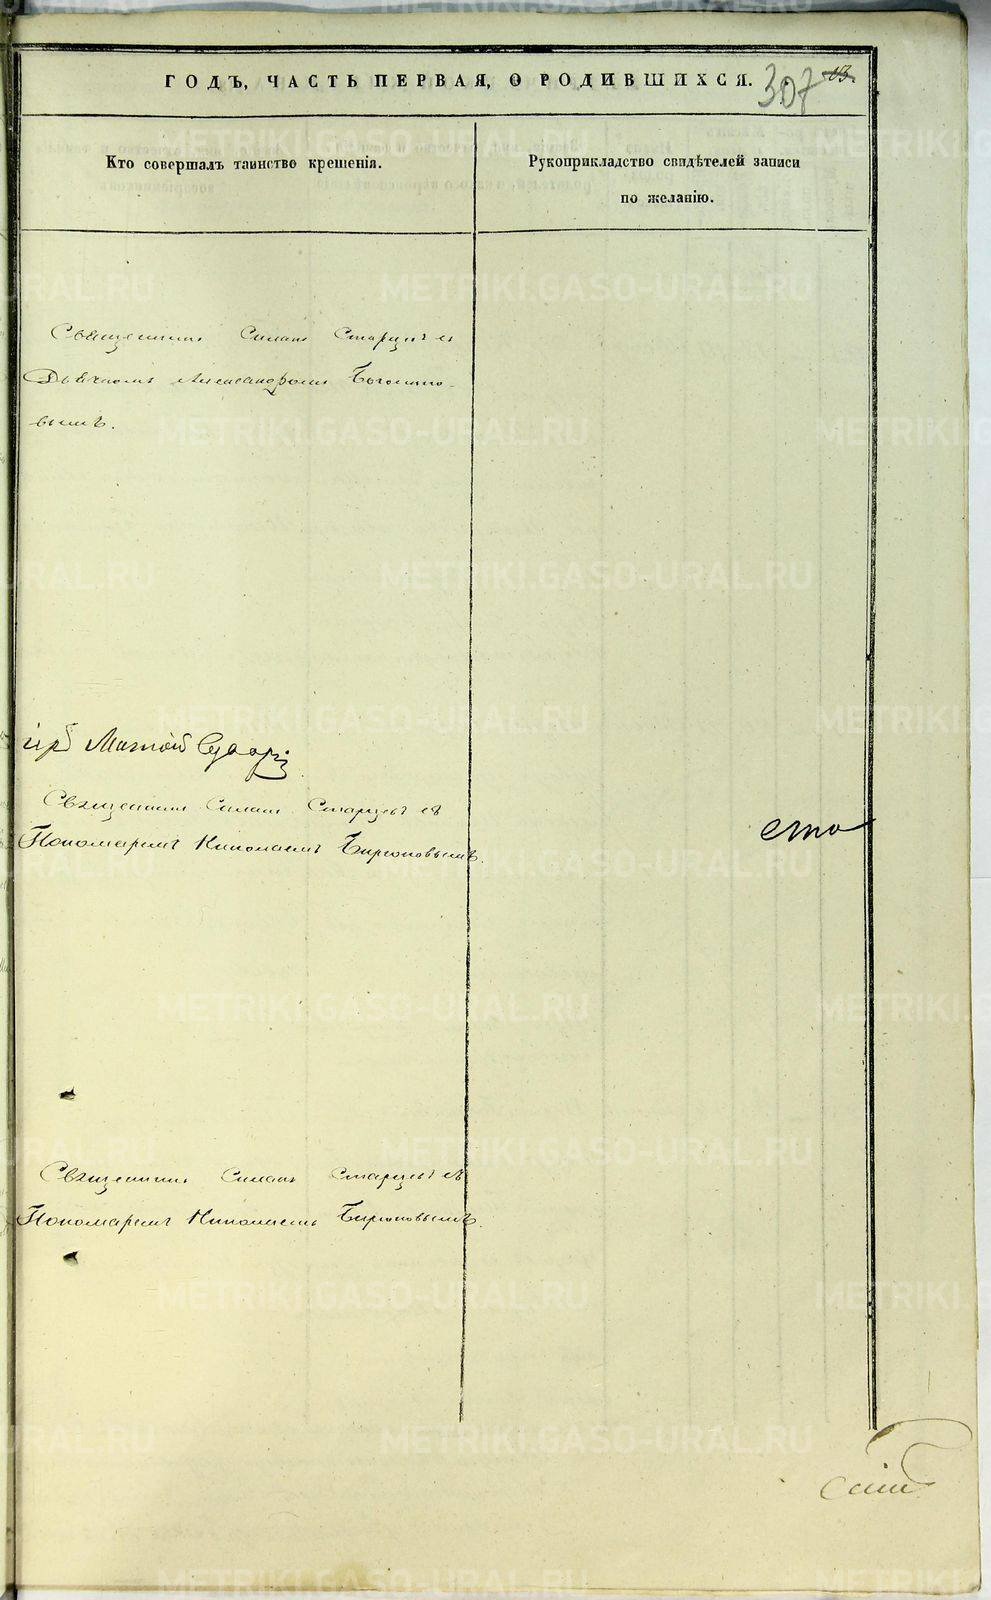 ГОДЪ, ЧАСТЬ ПЕРВАЯ, О РОДИВШИХСЯ. 307 13.
Кто совершалъ таинство крещенія.
Рукоприкладство свидѣтелей записи
по желанію.
Священникъ Симонъ Старцевъ съ
Дьячкомъ Александромъ
вымъ.
Священникъ Симонъ Старцевъ съ
Пономаремъ Николаемъ Бирюковымъ.
сто
Священникъ Симонъ Старцевъ съ
Пономаремъ Николаемъ Бирюковымъ.
METRIKI.GASO-URAL.RU